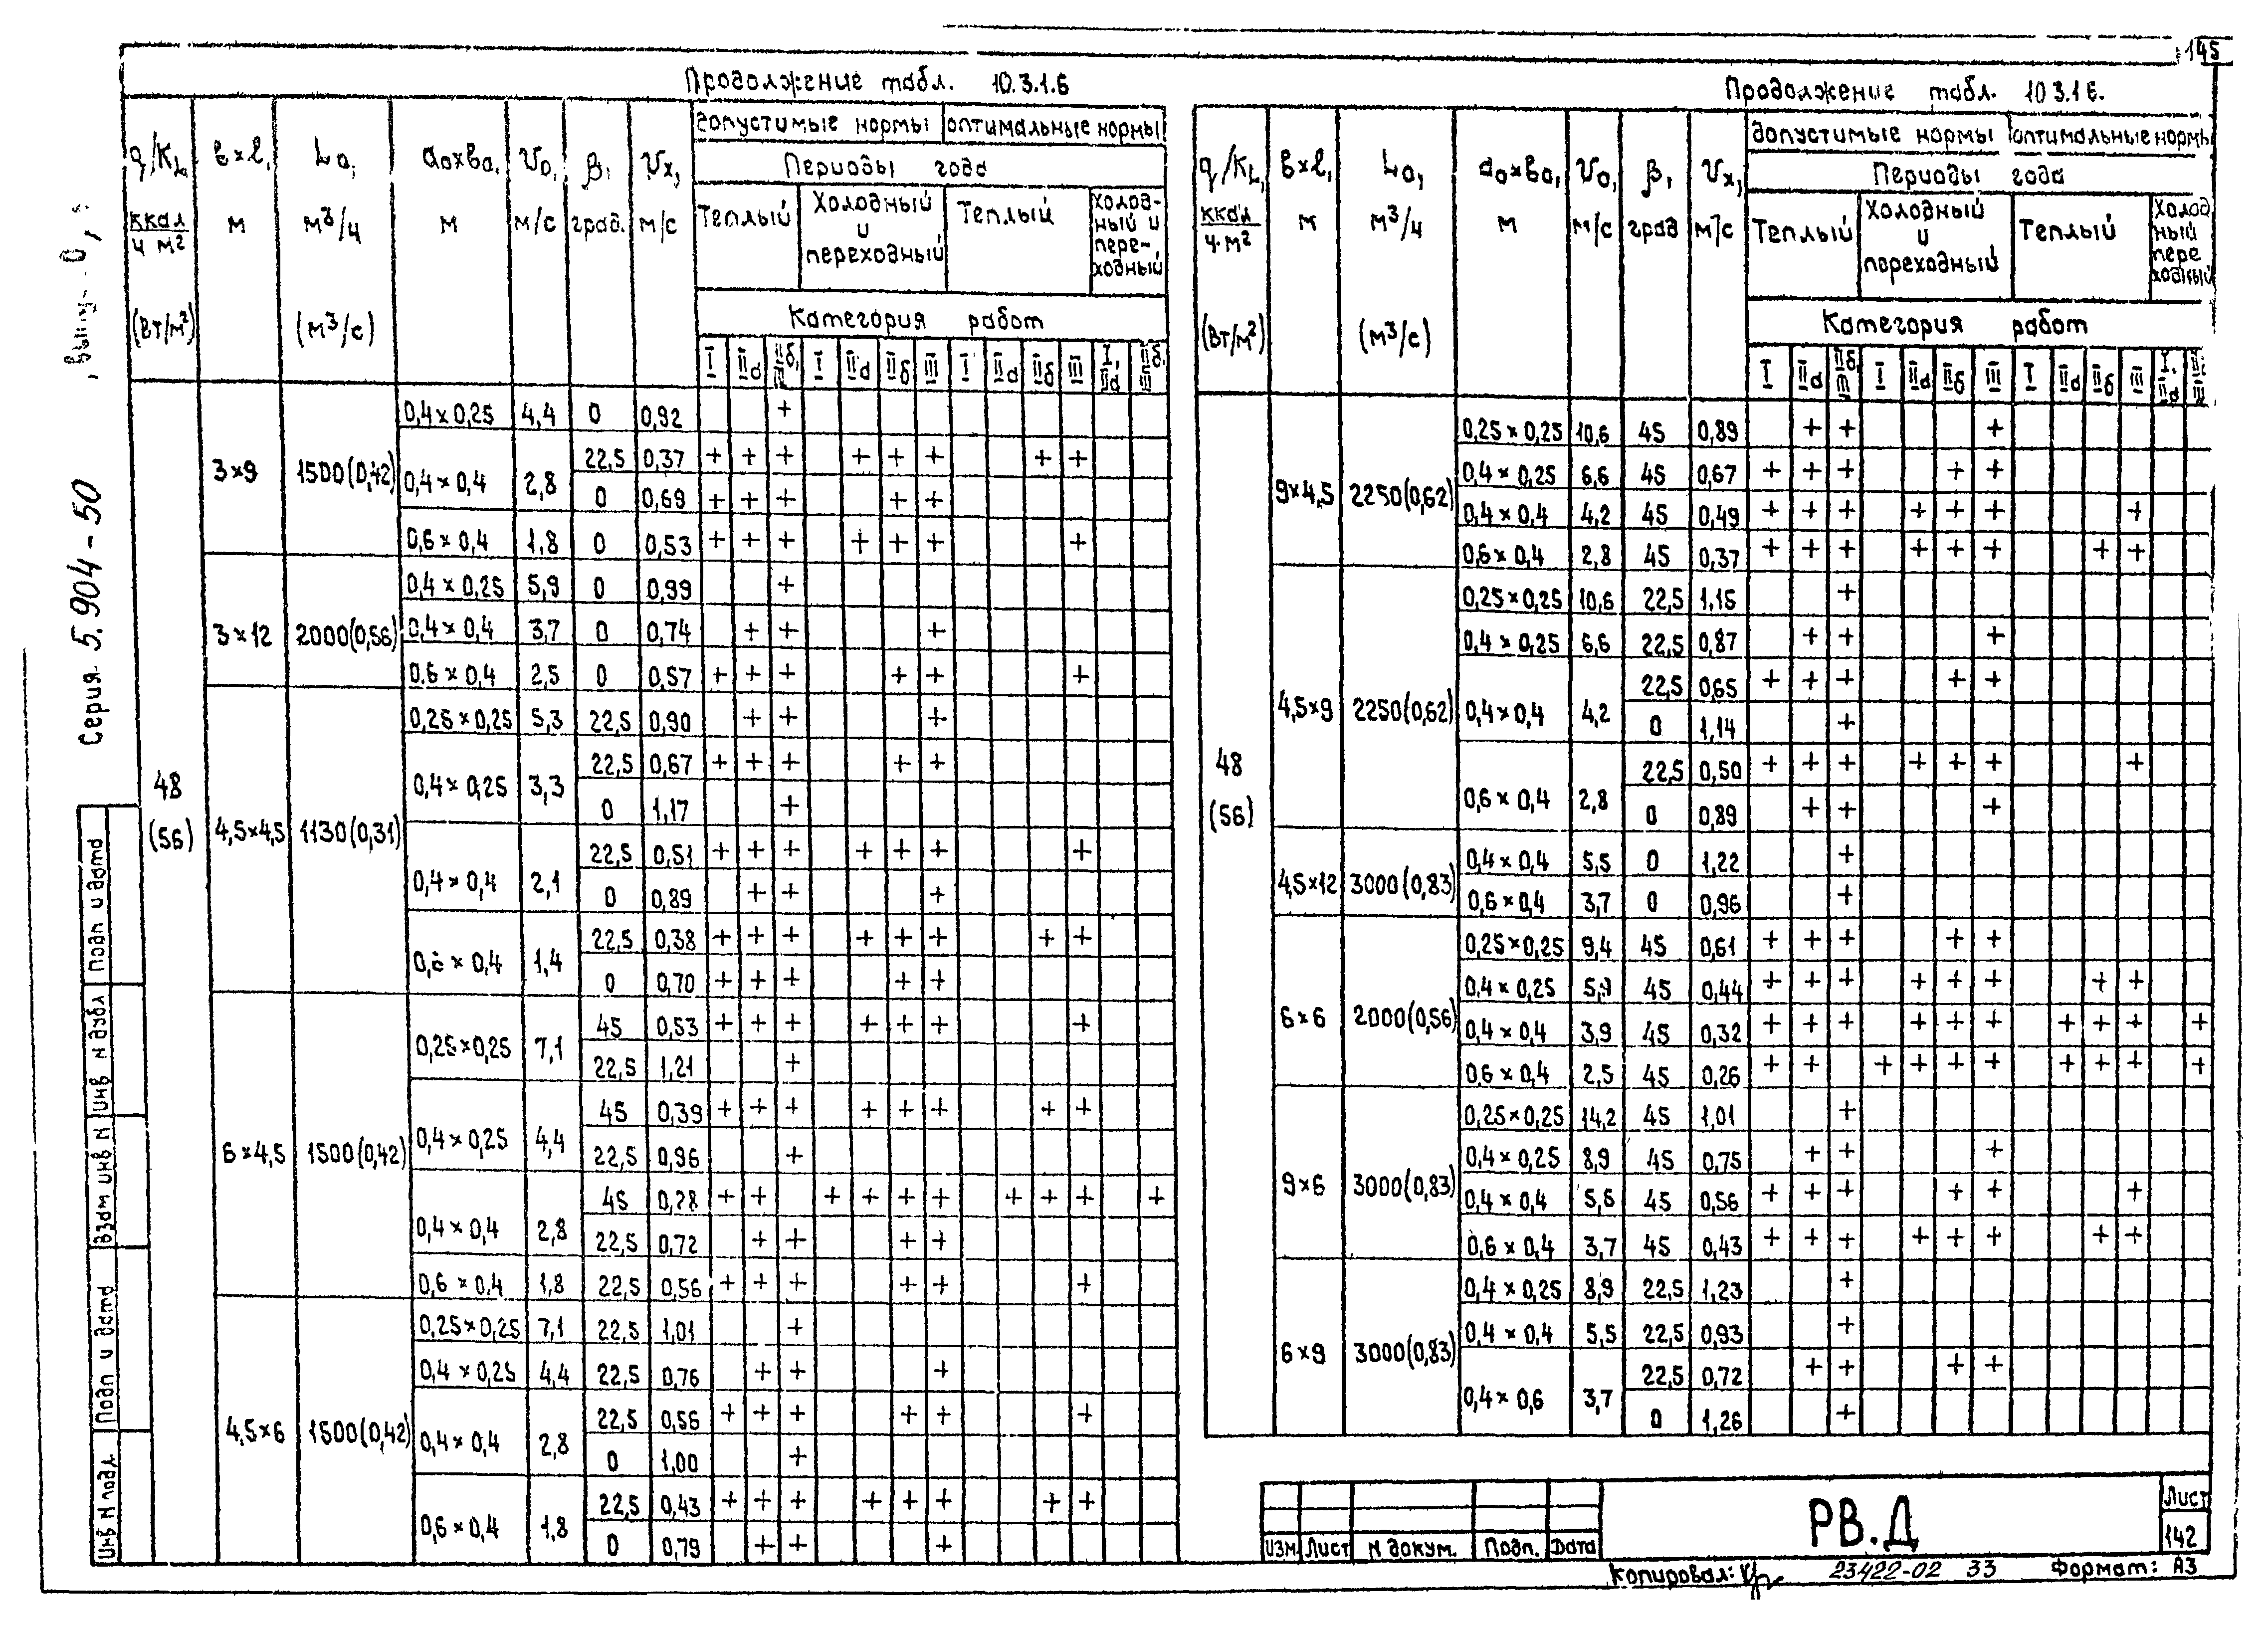 145
Продолжение табл. 10.3.1.6
q/KL, ккал/ч м² (Вт/м²) | в×l, м | L0, м³/ч (м³/с) | a0×в0, м | V0, м/с | β, град. | Vx, м/с | допустимые нормы | оптимальные нормы
Периоды года
Теплый | Холодный и переходный | Теплый | Холодный и переходный
Категория работ
I | IIа | IIб, III | I | IIа | IIб | III | I | IIа | IIб | III | I, IIа | IIб, III
48 (56)
3×9 | 1500(0,42) | 0,4×0,25 | 4,4 | 0 | 0,92 | | | + | | | | | | | | | |
0,4×0,4 | 2,8 | 22,5 | 0,37 | + | + | + | | + | + | + | | | + | + | |
0 | 0,69 | + | + | + | | | + | + | | | | | |
0,6×0,4 | 1,8 | 0 | 0,53 | + | + | + | | + | + | + | | | | + | |
3×12 | 2000(0,56) | 0,4×0,25 | 5,9 | 0 | 0,99 | | | + | | | | | | | | | |
0,4×0,4 | 3,7 | 0 | 0,74 | | + | + | | | | + | | | | | |
0,6×0,4 | 2,5 | 0 | 0,57 | + | + | + | | | + | + | | | | + | |
4,5×4,5 | 1130(0,31) | 0,25×0,25 | 5,3 | 22,5 | 0,90 | | + | + | | | | + | | | | | |
0,4×0,25 | 3,3 | 22,5 | 0,67 | + | + | + | | | + | + | | | | | |
0 | 1,17 | | | + | | | | | | | | | |
0,4×0,4 | 2,1 | 22,5 | 0,51 | + | + | + | | + | + | + | | | | + | |
0 | 0,89 | | + | + | | | | + | | | | | |
0,6×0,4 | 1,4 | 22,5 | 0,38 | + | + | + | | + | + | + | | | + | + | |
0 | 0,70 | + | + | + | | | + | + | | | | | |
6×4,5 | 1500(0,42) | 0,25×0,25 | 7,1 | 45 | 0,53 | + | + | + | | + | + | + | | | | + | |
22,5 | 1,21 | | | + | | | | | | | | | |
0,4×0,25 | 4,4 | 45 | 0,39 | + | + | + | | + | + | + | | | + | + | |
22,5 | 0,96 | | | + | | | | | | | | | |
0,4×0,4 | 2,8 | 45 | 0,28 | + | + | | + | + | + | + | | + | + | + | | +
22,5 | 0,72 | | + | + | | | + | + | | | | | |
0,6×0,4 | 1,8 | 22,5 | 0,56 | + | + | + | | | + | + | | | | + | |
4,5×6 | 1500(0,42) | 0,25×0,25 | 7,1 | 22,5 | 1,01 | | | + | | | | | | | | | |
0,4×0,25 | 4,4 | 22,5 | 0,76 | | + | + | | | | + | | | | | |
0,4×0,4 | 2,8 | 22,5 | 0,56 | + | + | + | | | + | + | | | | + | |
0 | 1,00 | | | + | | | | | | | | | |
0,6×0,4 | 1,8 | 22,5 | 0,43 | + | + | + | | + | + | + | | | + | + | |
0 | 0,79 | | + | + | | | | + | | | | | |
Продолжение табл. 10 3.1 6.
q/KL, ккал/ч·м² (Вт/м²) | в×l, м | L0, м³/ч (м³/с) | a0×в0, м | V0, м/с | β, град | Vx, м/с | допустимые нормы | оптимальные нормы
Периоды года
Теплый | Холодный и переходный | Теплый | Холод ный пере ходный
Категория работ
I | IIа | IIб III | I | IIа | IIб | III | I | IIа | IIб | III | I. IIа | II III
48 (56)
9×4,5 | 2250(0,62) | 0,25×0,25 | 10,6 | 45 | 0,89 | | + | + | | | | + | | | | | |
0,4×0,25 | 6,6 | 45 | 0,67 | + | + | + | | | + | + | | | | | |
0,4×0,4 | 4,2 | 45 | 0,49 | + | + | + | | + | + | + | | | | + | |
0,6×0,4 | 2,8 | 45 | 0,37 | + | + | + | | + | + | + | | | + | + | |
4,5×9 | 2250(0,62) | 0,25×0,25 | 10,6 | 22,5 | 1,15 | | | + | | | | | | | | | |
0,4×0,25 | 6,6 | 22,5 | 0,87 | | + | + | | | | + | | | | | |
0,4×0,4 | 4,2 | 22,5 | 0,65 | + | + | + | | | + | + | | | | | |
0 | 1,14 | | | + | | | | | | | | | |
0,6×0,4 | 2,8 | 22,5 | 0,50 | + | + | + | | + | + | + | | | | + | |
0 | 0,89 | | + | + | | | | + | | | | | |
4,5×12 | 3000(0,83) | 0,4×0,4 | 5,5 | 0 | 1,22 | | | + | | | | | | | | | |
0,6×0,4 | 3,7 | 0 | 0,96 | | | + | | | | | | | | | |
6×6 | 2000(0,56) | 0,25×0,25 | 9,4 | 45 | 0,61 | + | + | + | | | + | + | | | | | |
0,4×0,25 | 5,9 | 45 | 0,44 | + | + | + | | + | + | + | | | + | + | |
0,4×0,4 | 3,9 | 45 | 0,32 | + | + | + | | + | + | + | | + | + | + | | +
0,6×0,4 | 2,5 | 45 | 0,26 | + | + | | + | + | + | + | | + | + | + | | +
9×6 | 3000(0,83) | 0,25×0,25 | 14,2 | 45 | 1,01 | | | + | | | | | | | | | |
0,4×0,25 | 8,9 | 45 | 0,75 | | + | + | | | | + | | | | | |
0,4×0,4 | 5,5 | 45 | 0,56 | + | + | + | | | + | + | | | | + | |
0,6×0,4 | 3,7 | 45 | 0,43 | + | + | + | | + | + | + | | | + | + | |
6×9 | 3000(0,83) | 0,4×0,25 | 8,9 | 22,5 | 1,23 | | | + | | | | | | | | | |
0,4×0,4 | 5,5 | 22,5 | 0,93 | | | + | | | | | | | | | |
0,4×0,6 | 3,7 | 22,5 | 0,72 | | + | + | | | + | + | | | | | |
0 | 1,26 | | | + | | | | | | | | | |
Серия 5.904-50
Подп и дата
Инв N дубл
Взам инв N
Подп и дата
Инв N подл
Изм Лист N докум. Подп. Дата
РВ.Д
Лист
142
Копировал:
23422-02 33
Формат: А3